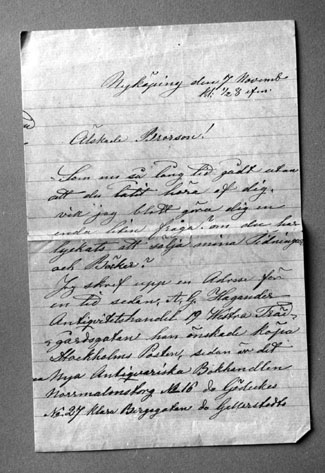 Nyköping den 7 Novemb
kl. 1/2 3 efm.
Älskade Brorson!
Som nu så lång tid gådt utan
att du latit höra af dig,
vill jag blott göra dig en
enda liten fråga? om du har
lyckats att sälja mina Tidningar
och Böcker?
Jg skref upp en Adress för
en tid sedan, A, G Hagender
Antiqvitetshandel 19 Westra Träd-
gårdsgatan han önskade köpa
Stockholms Posten, sedan är det
Nya Antiqvariska Bokhandlen
Norrmalmstorg No 16 do Gödeckes
No. 27 Klara Bergsgatan do Gellerstedts